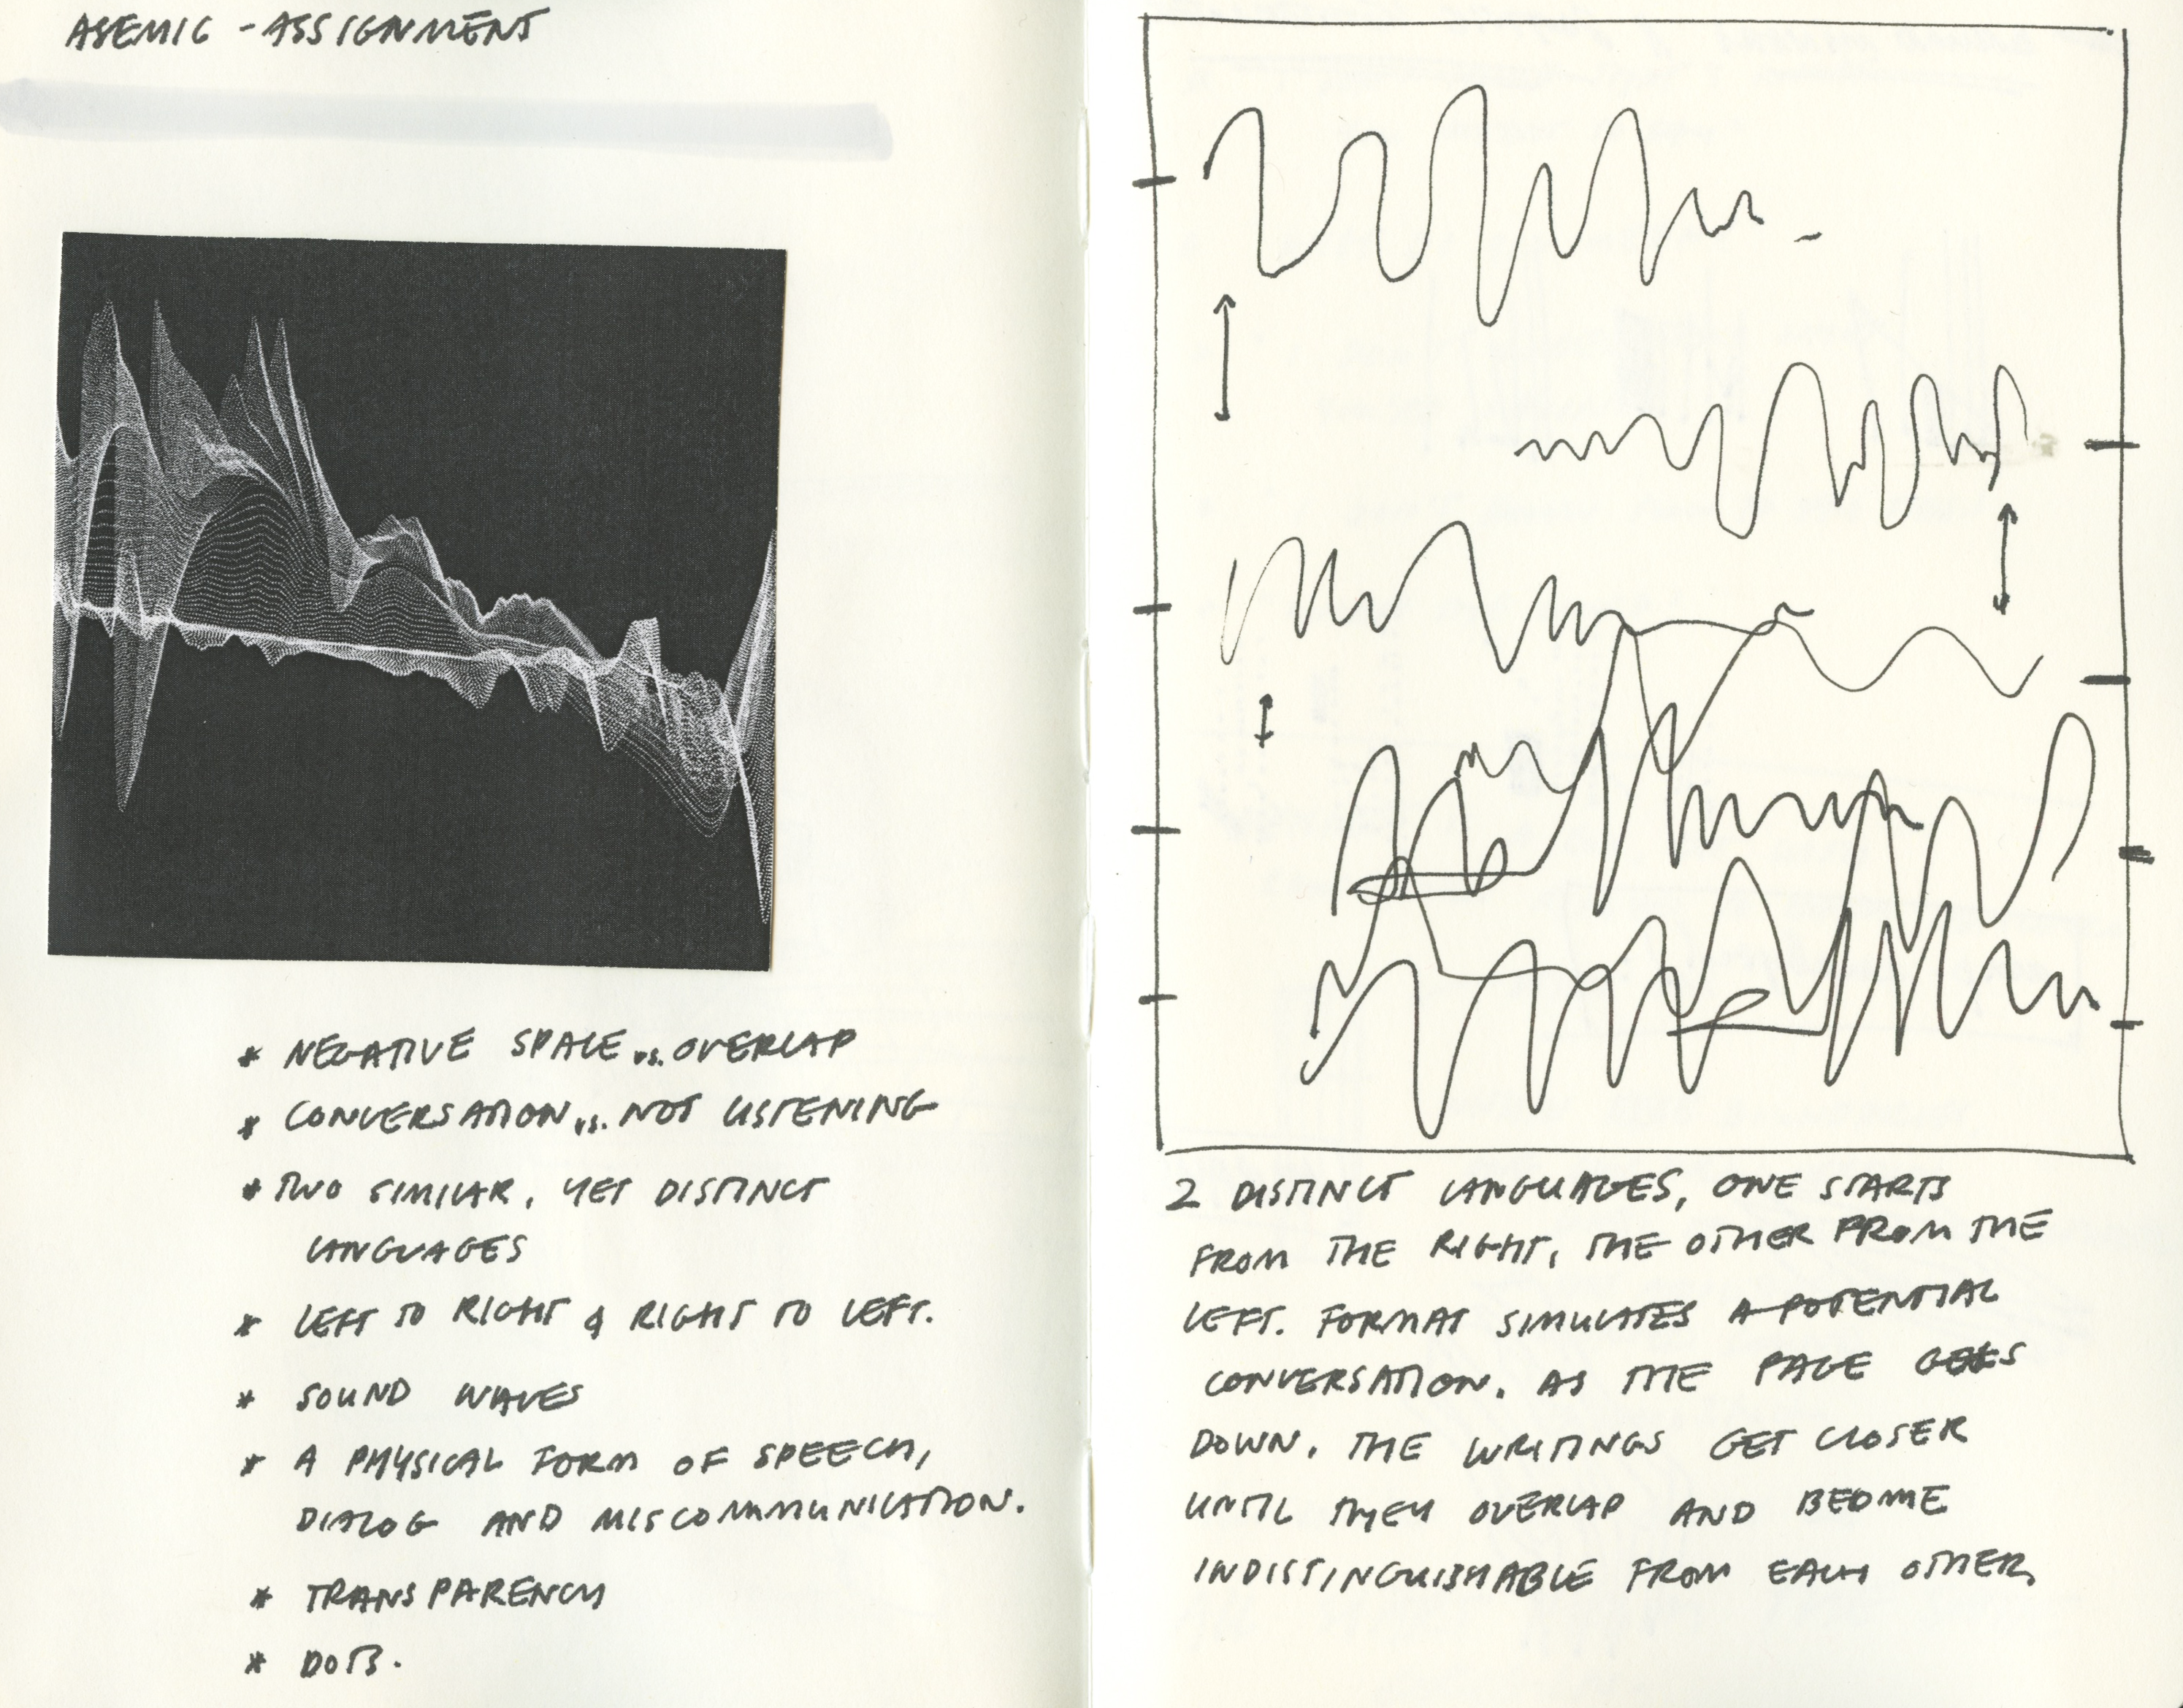 ASEMIC - ASSIGNMENT
* NEGATIVE SPACE vs. OVERLAP
* CONVERSATION vs. NOT LISTENING
* TWO SIMILAR, YET DISTINCT
LANGUAGES
* LEFT TO RIGHT & RIGHT TO LEFT.
* SOUND WAVES
* A PHYSICAL FORM OF SPEECH,
DIALOG AND MISCOMMUNICATION.
* TRANSPARENCY
* DOTS.
2 DISTINCT LANGUAGES, ONE STARTS
FROM THE RIGHT, THE OTHER FROM THE
LEFT. FORMAT SIMULATES A POTENTIAL
CONVERSATION. AS THE PAGE GOES
DOWN, THE WRITINGS GET CLOSER
UNTIL THEY OVERLAP AND BECOME
INDISTINGUISHABLE FROM EACH OTHER.